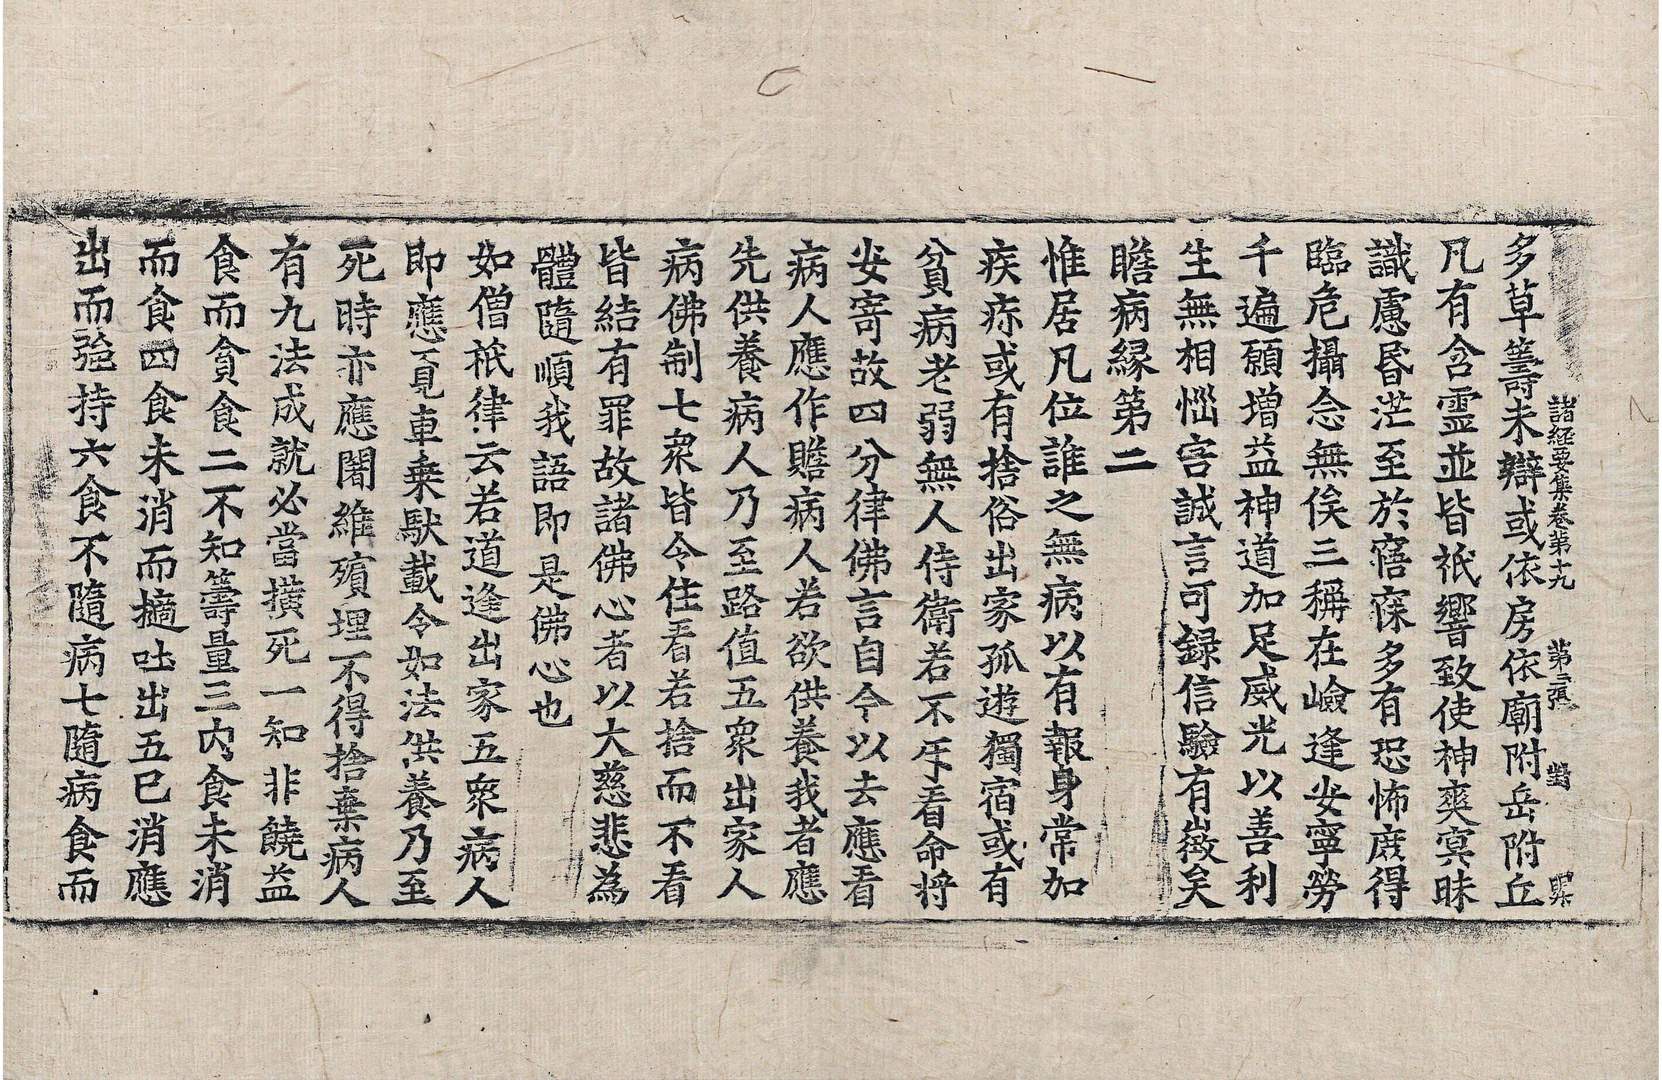 諸經要集卷第十九 第二張
多草籌未辯或依房依廟附岳附丘
凡有含霊並皆祇響致使神爽冥昧
識慮昏茫至於寤寐多有恐怖庶得
臨危攝念無俟三稱在嶮逢安寧勞
千遍願增益神道加足威光以善利
生無相惱害誠言可録信驗有徵矣
瞻病緣第二
惟居凡位誰之無病以有報身常加
疾疹或有捨俗出家孤遊獨宿或有
貧病老弱無人侍衛若不斥看命將
安寄故四分律佛言自今以去應看
病人應作瞻病人若欲供養我者應
先供養病人乃至路值五衆出家人
病佛制七衆皆令住看若捨而不看
皆結有罪故諸佛心者以大慈悲為
體隨順我語即是佛心也
如僧祇律云若道逢出家五衆病人
即應覓車乗馱載令如法供養乃至
死時亦應闍維殯埋不得捨棄病人
有九法成就必當橫死一知非饒益
食而貪食二不知籌量三内食未消
而食四食未消而擿吐出五已消應
出而強持六食不隨病七隨病食而